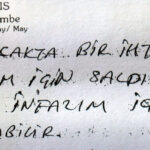 IS
mbe
ay/ May
CAKTA BİR İHT
M İÇİN SALDI
İNFAZIM İÇ
ABİLİR.